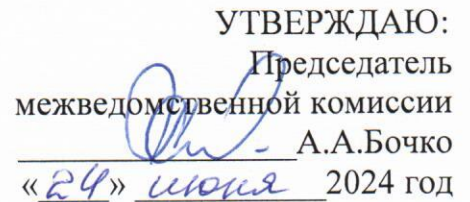 УТВЕРЖДАЮ:
Председатель
межведомственной комиссии
А.А.Бочко
«24» июня 2024 год